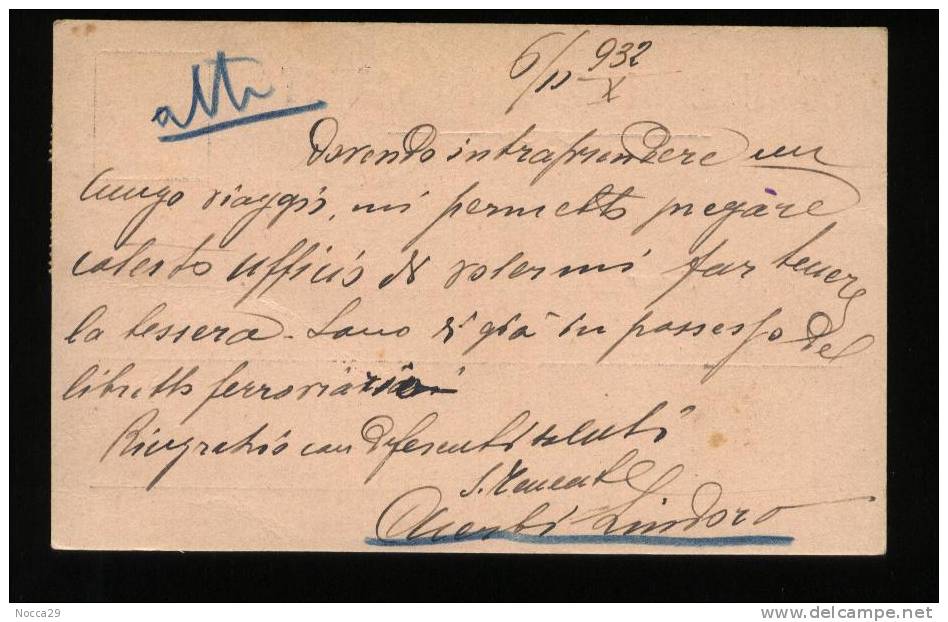 6/11 932
X
atti
Dovendo intraprendere un
lungo viaggio, mi permetto pregare
codesto ufficio di volermi far tenere
la tessera. Sono di già in possesso del
libretto ferroviario
Ringrazio con deferenti saluti
S. Tenente
Lindoro
Nocca29
www.delcampe.net